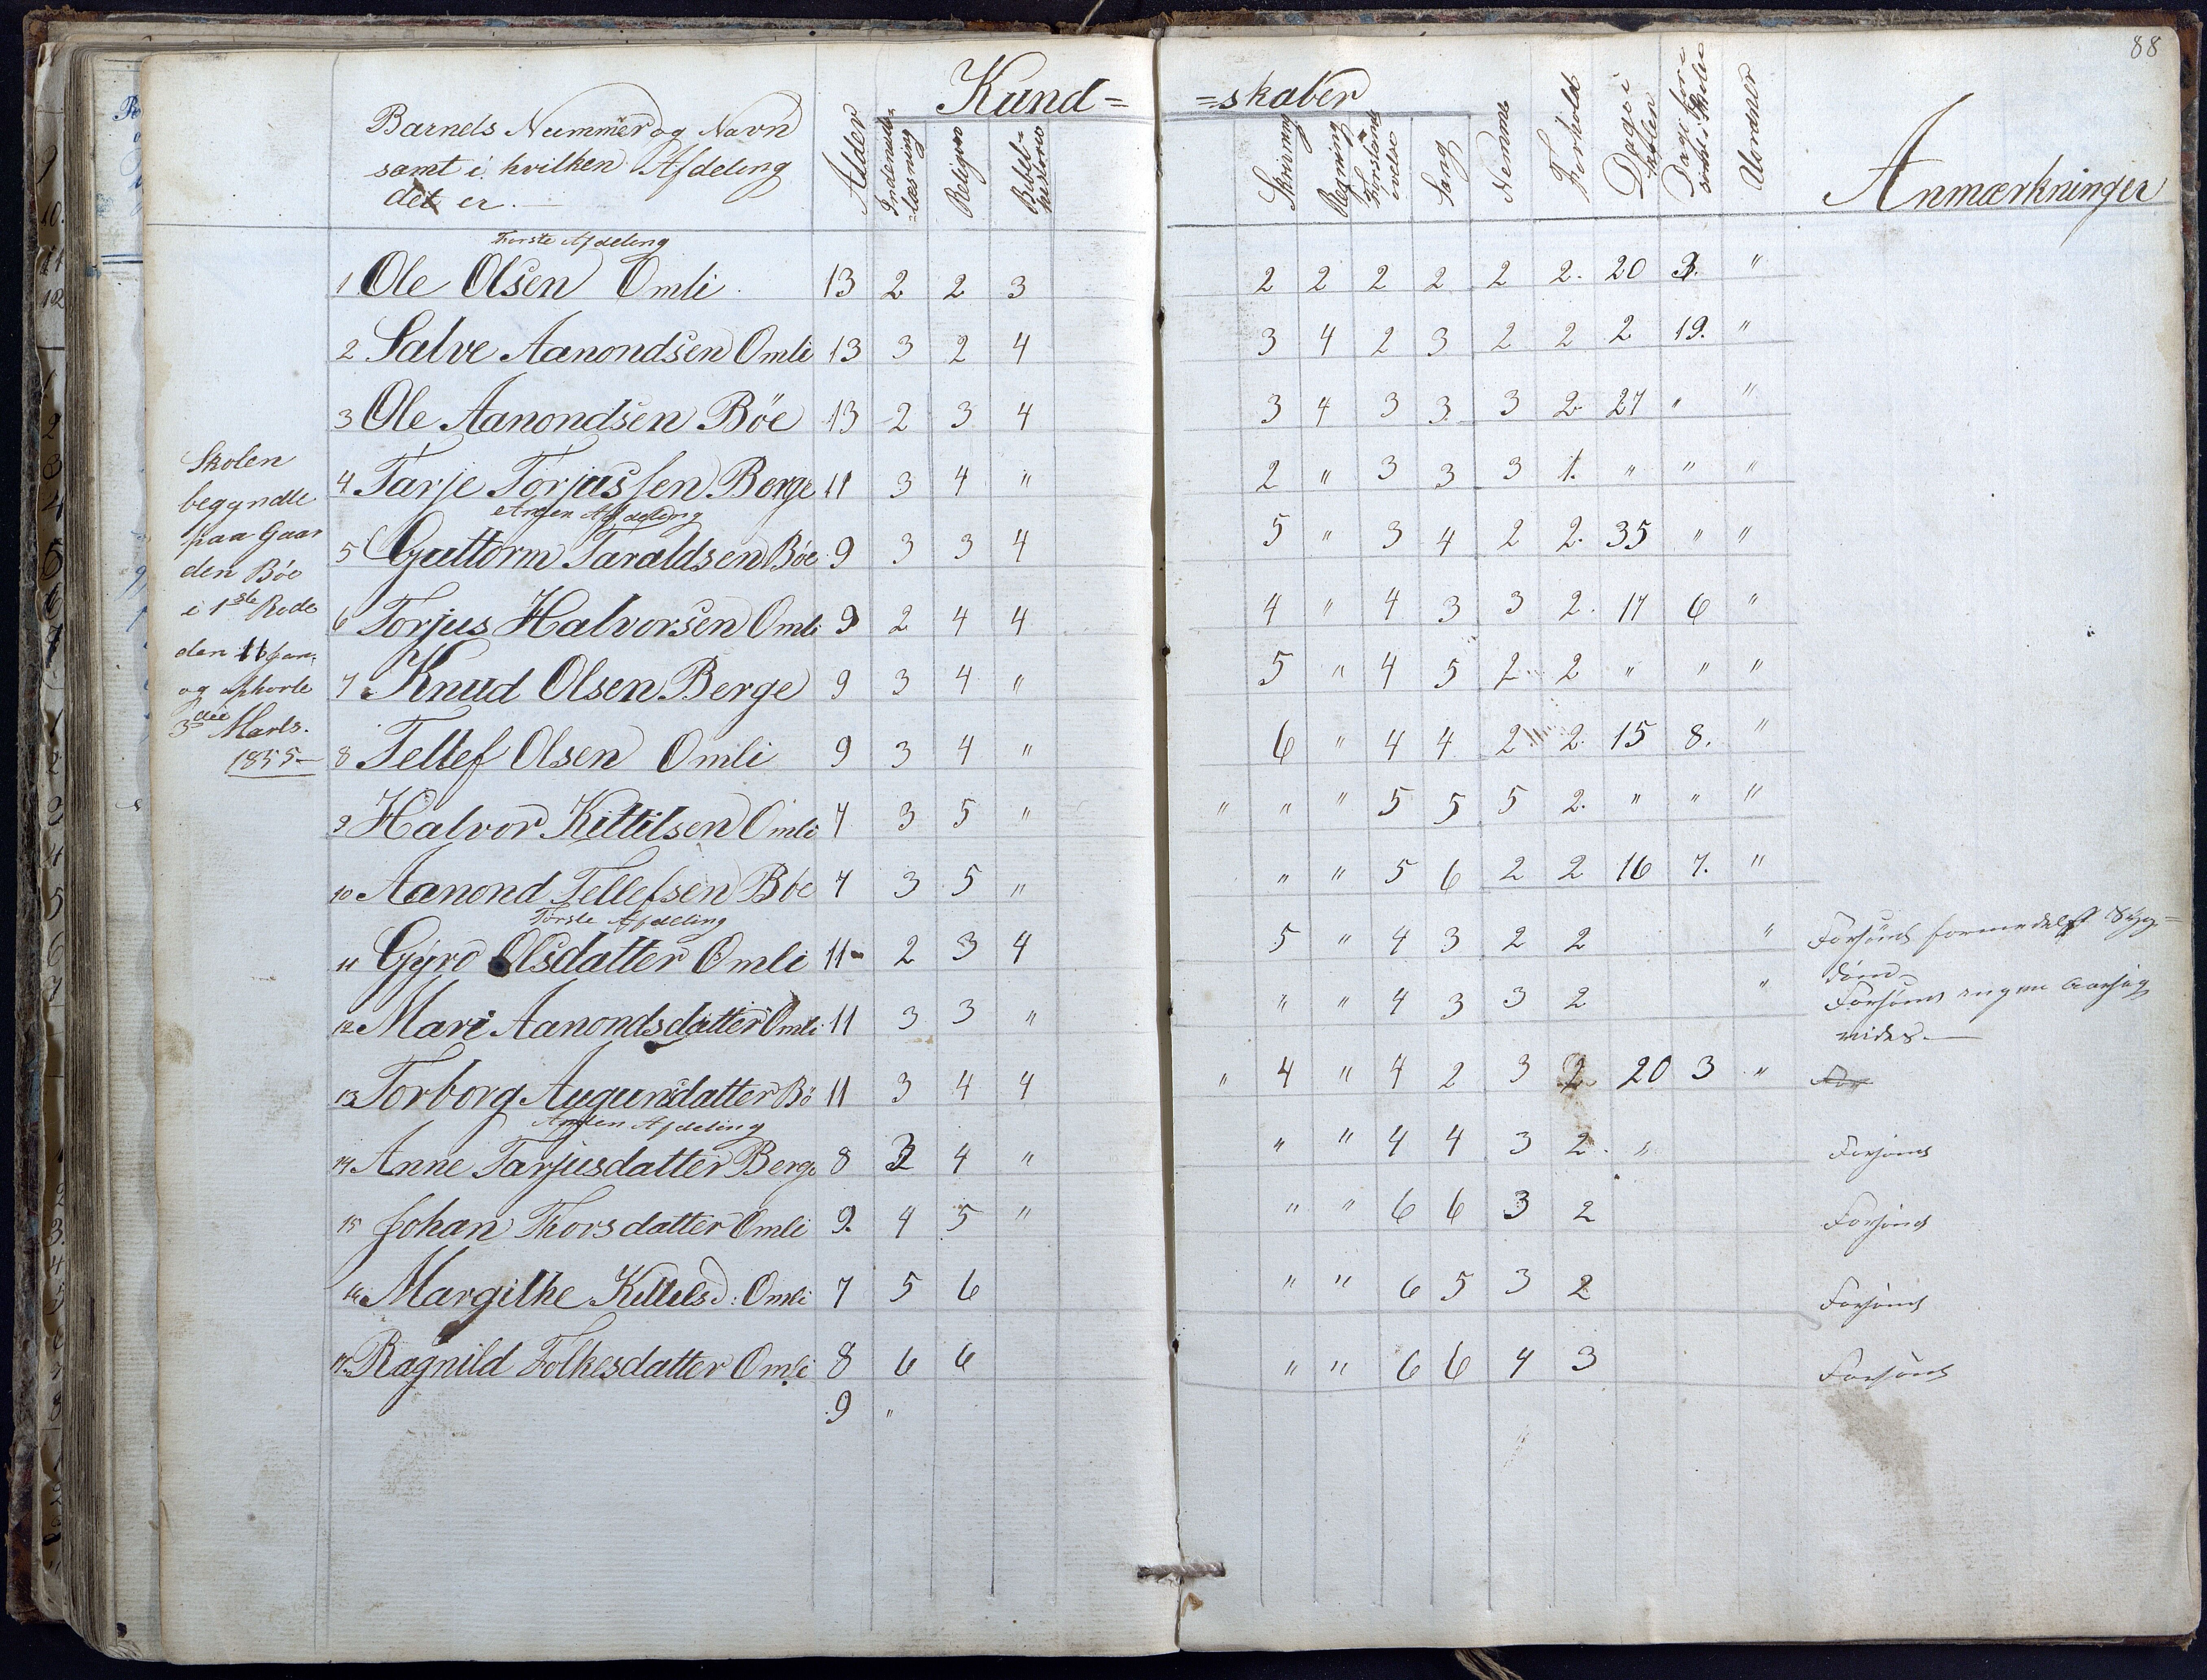 88
Kund= =skaber
Barnets Nummer og Navn
samt i hvilken Afdeling
det er.—
Alder
Indenads-
læsning
Religion
Bibel-
historie
Skrivning
Regning
Forstands
øvelse
Sang
Nemme
Forhold
Dage i
Skolen
Dage for-
sømt i Skolen
Uordner
Anmærkninger
Første Afdeling
1 Ole Olsen Omli 13 2 2 3 2 2 2 2 2 2. 20 3. "
2 Salve Aanondsen Omli 13 3 2 4 3 4 2 3 2 2 2 19. "
3 Ole Aanondsen Böe 13 2 3 4 3 4 3 3 3 2 27 " "
4 Tarje Torjussen Berge 11 3 4 " 2 " 3 3 3 1. " " "
Anden Afdeling
5 Guttorm Taraldsen Böe 9 3 3 4 5 " 3 4 2 2. 35 " "
6 Torjus Halvorsen Omli 9 2 4 4 4 " 4 3 3 2. 17 6 "
7 Knud Olsen Berge 9 3 4 " 5 " 4 5 2 2 " " "
8 Tellef Olsen Omli 9 3 4 " 6 " 4 4 2 2. 15 8. "
9 Halvor Kittilsen Omli 7 3 5 " " " " 5 5 5 2. " " "
10 Aanond Tellefsen Böe 7 3 5 " " " 5 6 2 2 16 7. "
Første Afdeling
11 Gyro Olsdatter Omli 11 2 3 4 5 " 4 3 2 2 " Forsömt formedelst Syg=
dom
12 Mari Aanondsdatter Omli 11 3 3 " " " 4 3 3 2 " Forsömt ingen Aarsag
vides.—
13 Torborg Augunsdatter Bö 11 3 4 4 " 4 " 4 2 3 2 20 3 " For
Anden Afdeling
14 Anne Tarjusdatter Berge 8 3 4 " " " 4 4 3 2. " Forsömt
15 Johan Thorsdatter Omli 9. 4 5 " " " 6 6 3 2 Forsömt
16 Margithe Kittelsd: Omli 7 5 6 " " 6 5 3 2 Forsömt
17 Ragnild Folkesdatter Omli 8 6 6 " " 6 6 4 3 Forsömt
9 "
Skolen
begyndte
paa Gaar
den Böe
i 1ste Rode
den 11 Jan.
og ophorte
3die Marts.
1855—